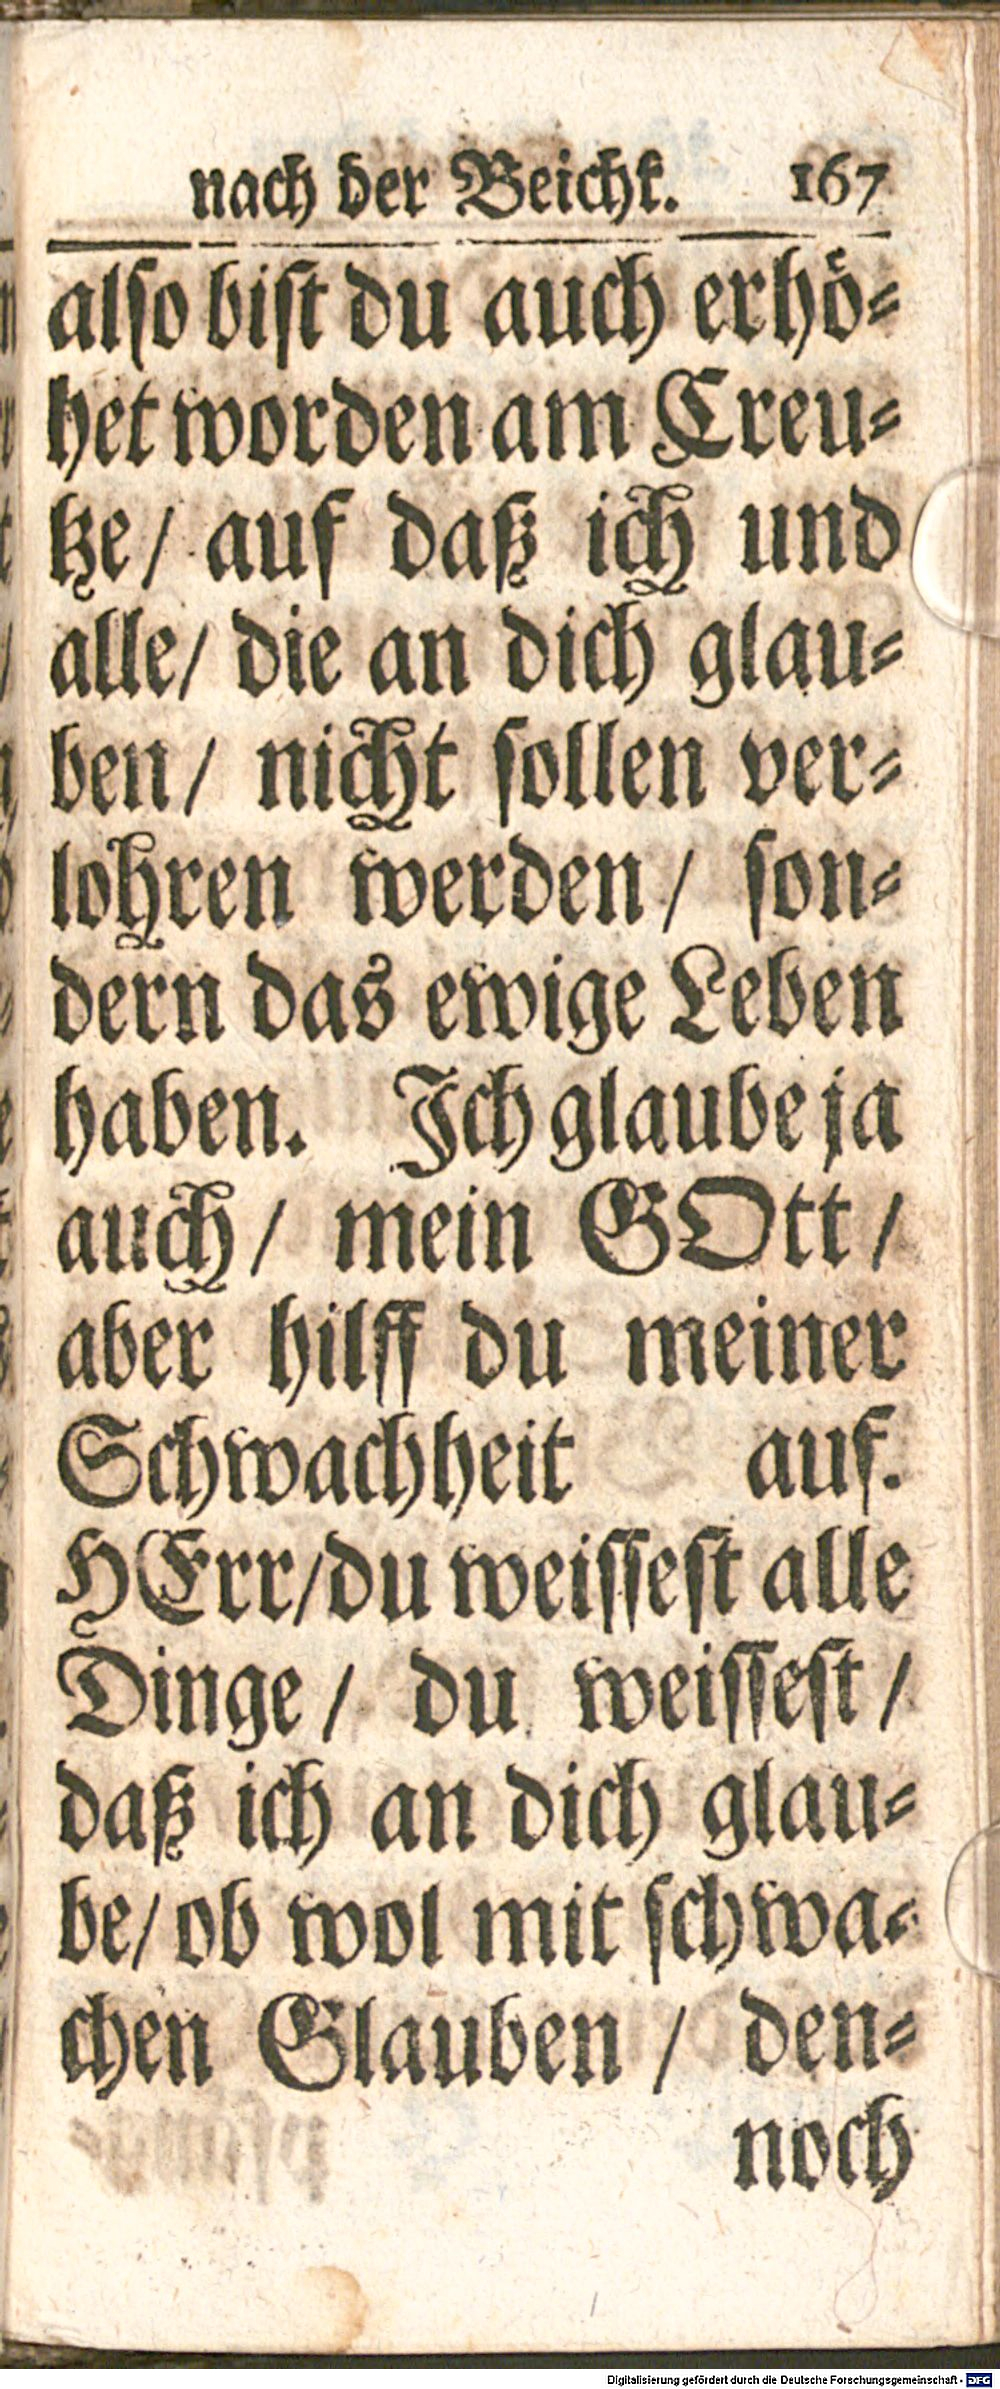 nach der Beicht. 167
also bist du auch erhö-
het worden am Creu-
tze/ auf daß ich und
alle/ die an dich glau-
ben/ nicht sollen ver-
lohren werden/ son-
dern das ewige Leben
haben. Ich glaube ja
auch/ mein GOtt/
aber hilff du meiner
Schwachheit auf.
HErr/du weissest alle
Dinge/ du weissest/
daß ich an dich glau-
be/ob wol mit schwa-
chen Glauben/ den-
noch
Digitalisierung gefördert durch die Deutsche Forschungsgemeinschaft - DFG